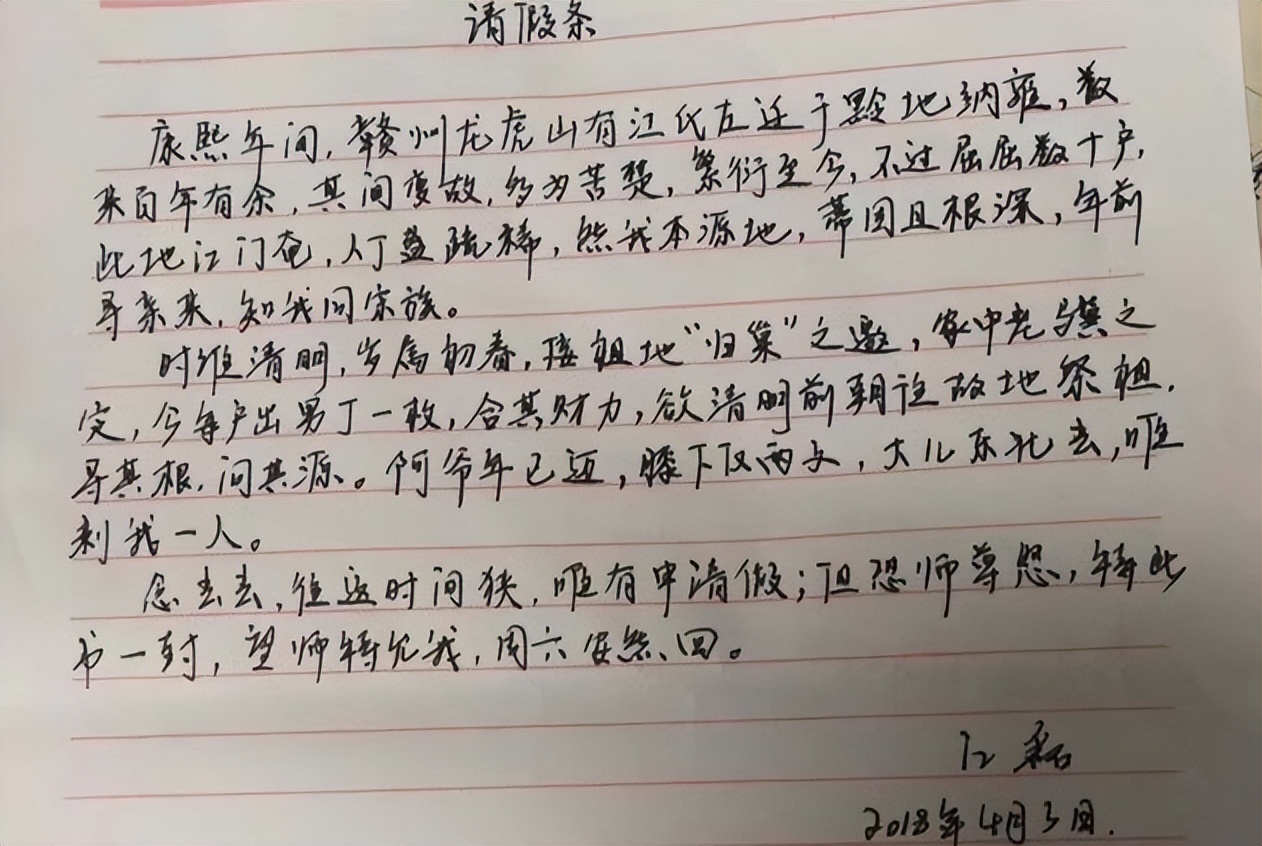 请假条
康熙年间,赣州龙虎山有江氏左迁于黔地纳雍,数
来百年有余,其间变故,多为苦楚,繁衍至今,不过屈屈数十户,
此地江门奄,人丁益疏稀,然我本源地,蒂固且根深,年前
寻亲来,知我同宗族。
时维清明,岁属初春,接祖地“归巢”之邀,家中老与冀之
定,今每户出男丁一枚,合其财力,欲清明前朝往故地祭祖,
寻其根,问其源。阿爷年已迈,膝下仅两文,大儿东北去,唯
剩我一人。
念去去,往返时间狭,唯有申请假;但恐师尊怒,特此
书一封,望师特允我,周六安然回。
江磊
2018年4月3日.